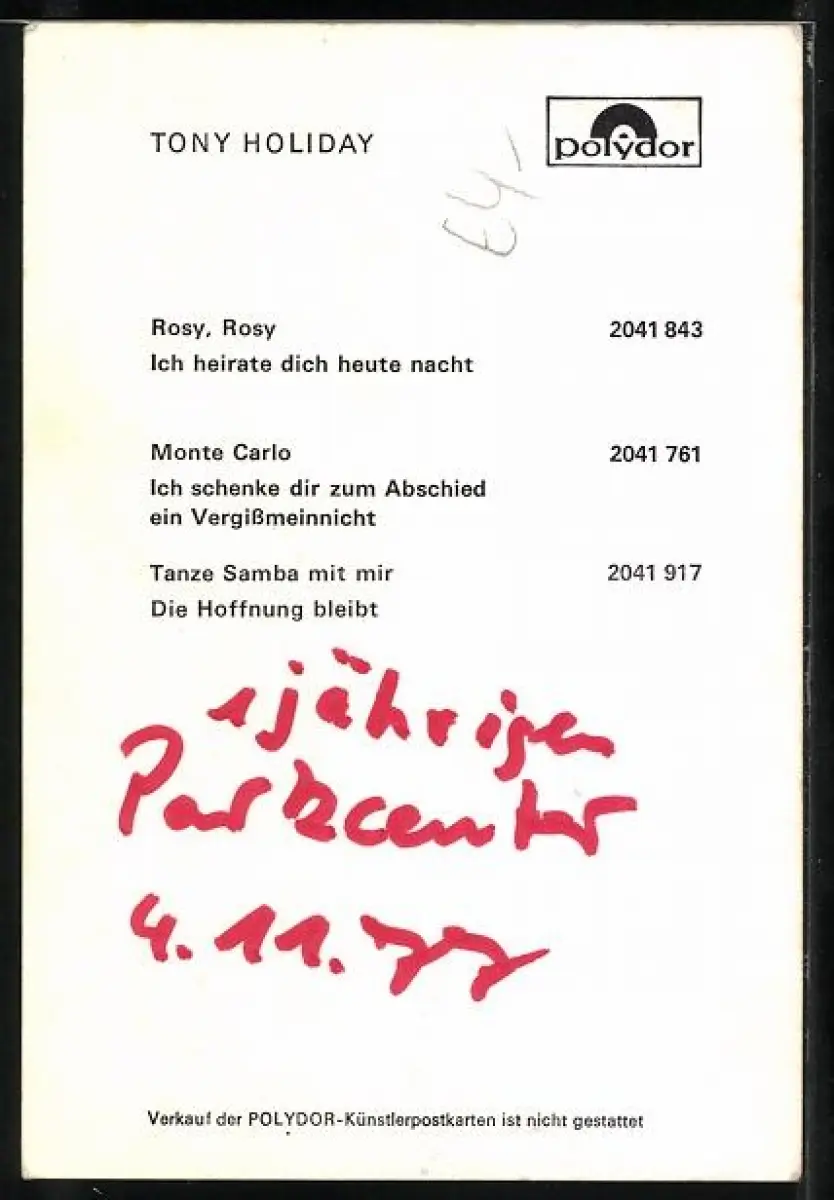 TONY HOLIDAY
polydor
Rosy, Rosy 2041 843
Ich heirate dich heute nacht
Monte Carlo 2041 761
Ich schenke dir zum Abschied
ein Vergißmeinnicht
Tanze Samba mit mir 2041 917
Die Hoffnung bleibt
1jährigen
Parkcenter
4.11.77
Verkauf der POLYDOR-Künstlerpostkarten ist nicht gestattet